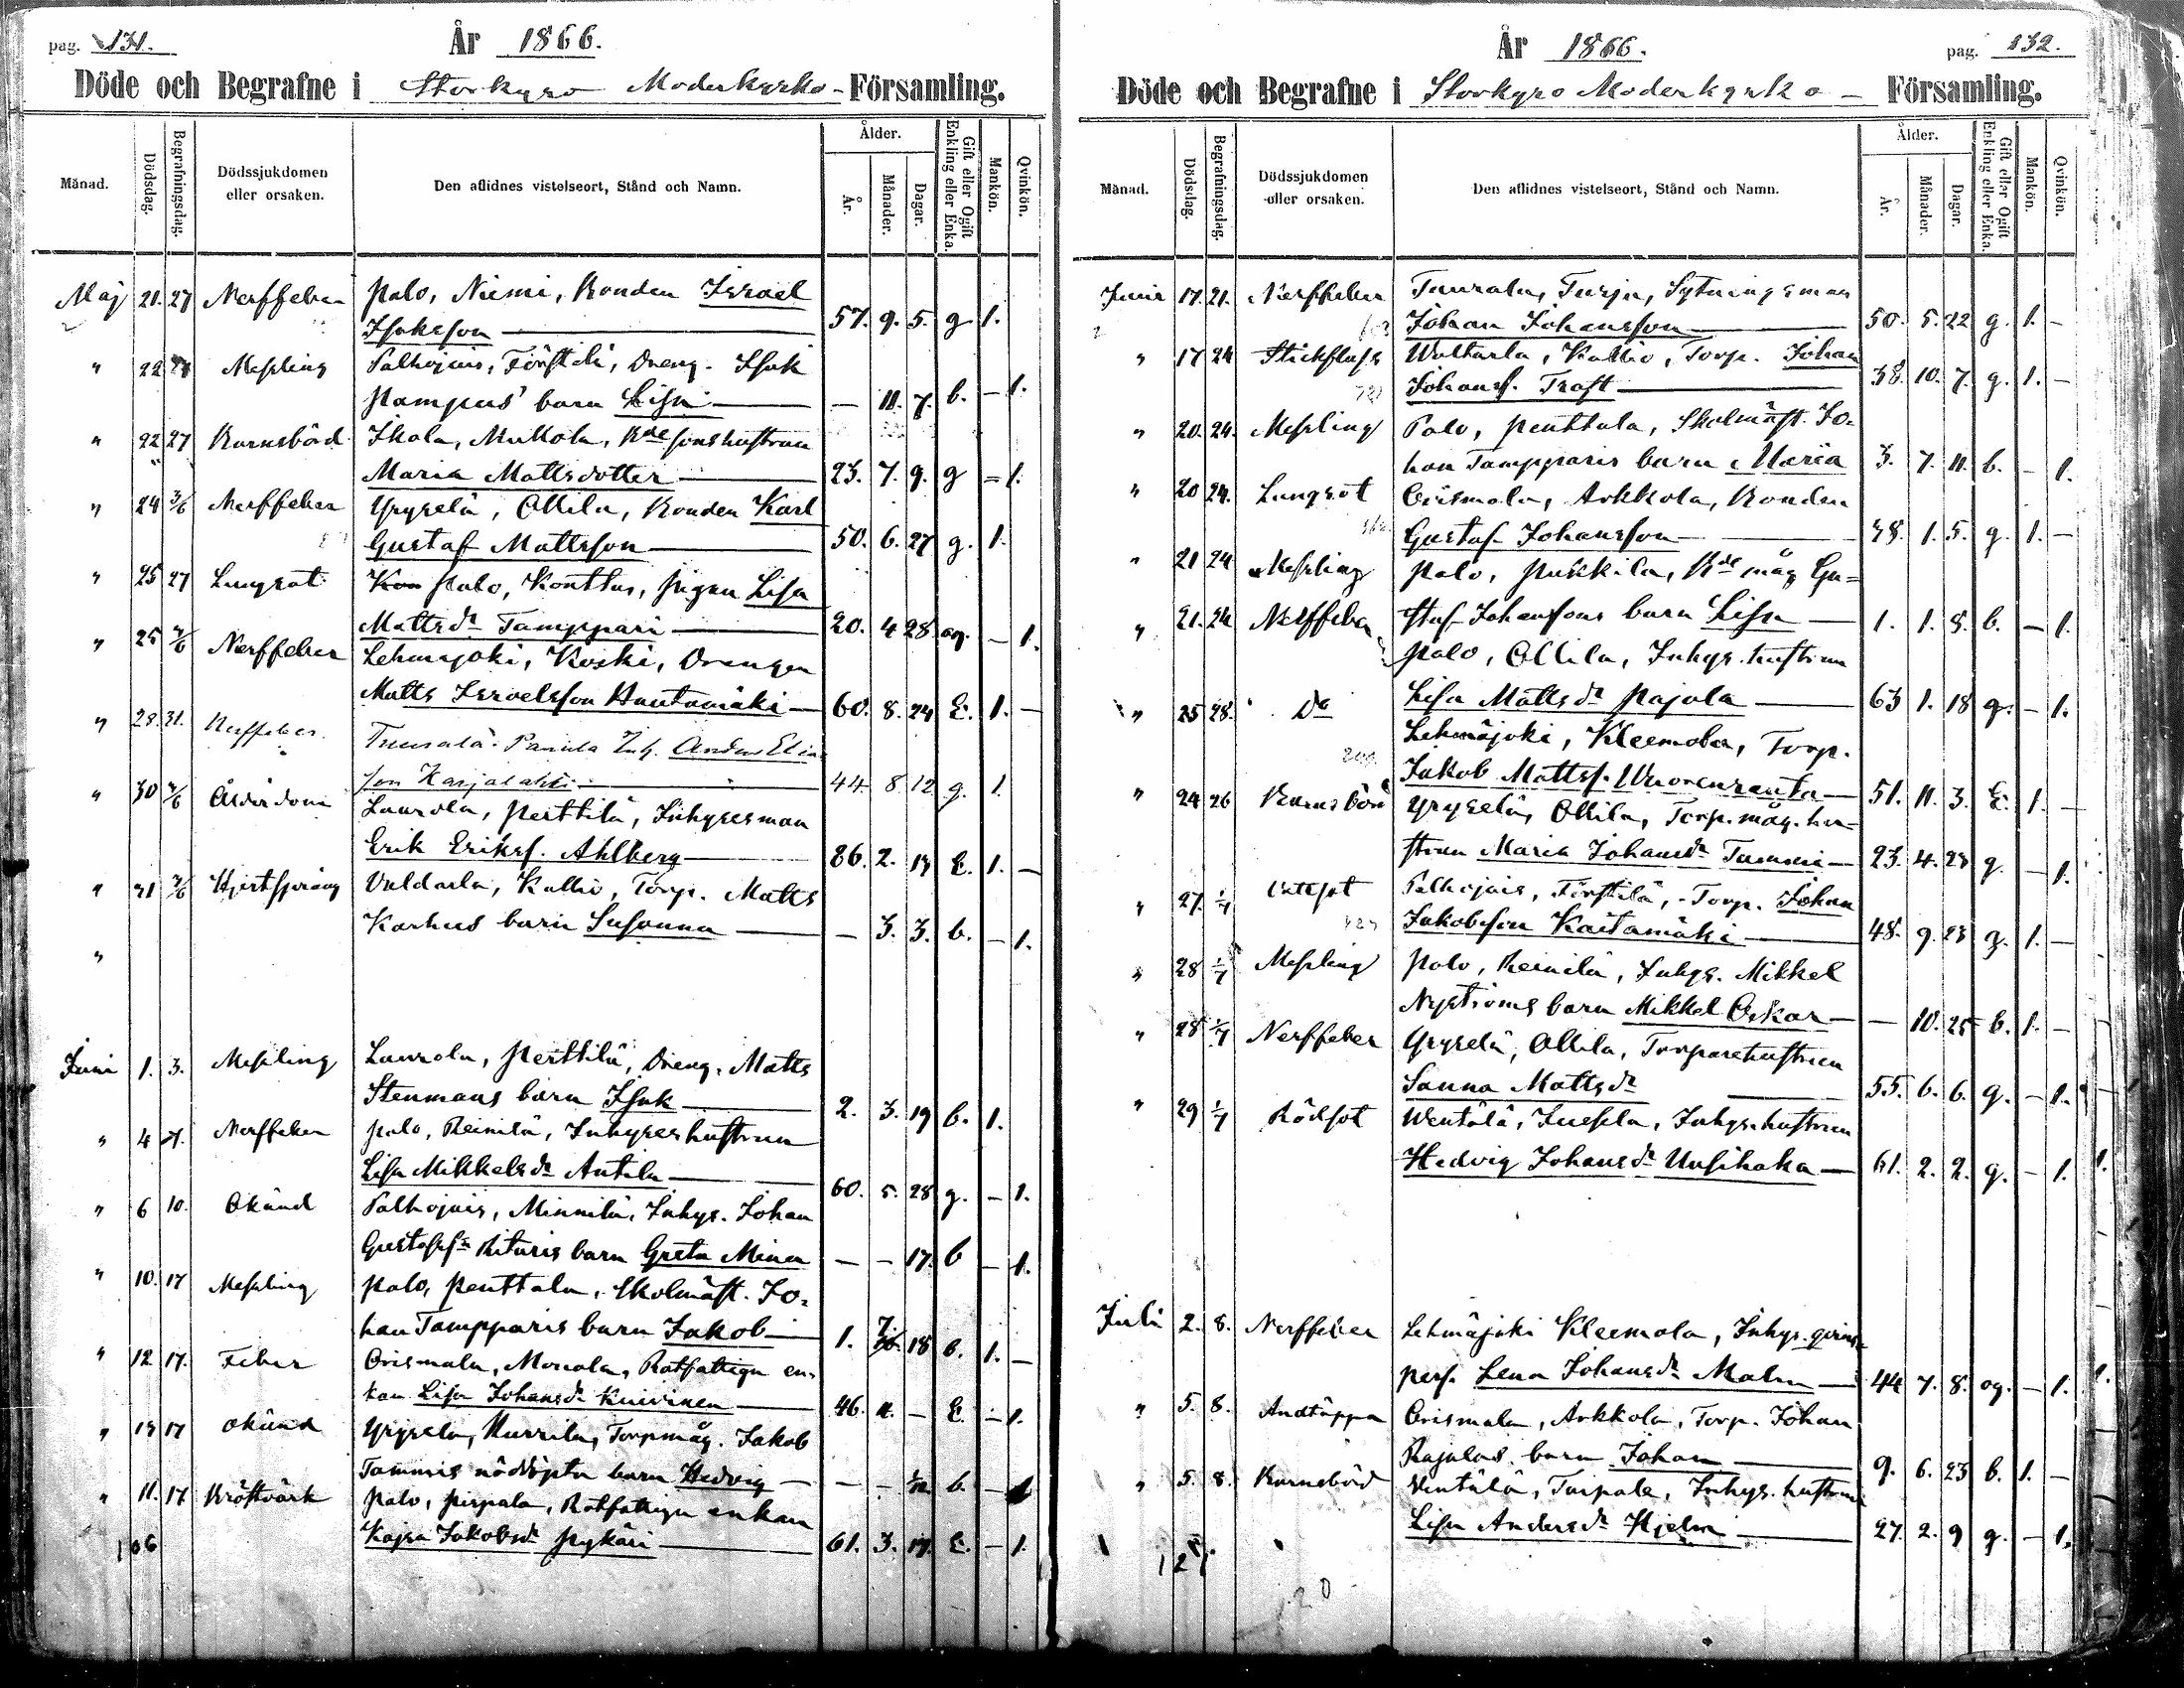 pag. 131.
År 1866.
Döde och Begrafne i Storkyro Moderkyrko- Församling.
Månad. Dödsdag. Begrafningsdag. Dödssjukdomen eller orsaken. Den aflidnes vistelseort, Stånd och Namn. Ålder. År. Månader. Dagar. Gift eller Ogift Enkling eller Enka. Mankön. Qvinkön.
Maj 21. 27 Nerffeber Palo, Niemi, Bonden Israel
Isaksson 57. 9. 5. g 1.
" 22 Messling Palhojais, Förstilä, Dreng. Isak
Pampus' barn Lisa — 11. 7. b. — 1.
" 22 27 Barnsbörd Ikola, Mukkola, Bdesonshustrun
Maria Mattsdotter 23. 7. 9. g — 1.
" 24 3/6 Nerffeber Yryselä, Ollila, Bonden Karl
Gustaf Mattsson 50. 6. 27 g. 1.
" 25 27 Lungsot Palo, Konttas, Pigan Lisa
Mattsdr Tamppari 20. 4 28 og. — 1.
" 25 3/6 Nerffeber Lehmäjoki, Koski, Drengen
Matts Israelsson Hautamäki 60. 8. 24 E. 1. —
" 28. 31. Nerffeber Tuurala Panula Inh. Anders Elia
son Karjalahti 44. 8 12 g. 1.
" 30 3/6 Ålderdom Laurola, Perttilä, Inhysesman
Erik Eriksf. Ahlberg 86. 2. 19 E. 1. —
" 31 3/6 Hjertsprång Valdarla, Kallio, Torp. Matts
Karhus barn Susanna — 3. 3. b. — 1.
"
Juni 1. 3. Messling Laurola, Perttilä, Dreng. Matts
Stenmans barn Isak 2. 3. 19 b. 1.
" 4 Nerffeber Palo, Reinilä, Inhyseshustrun
Lisa Mikkelsdr Antila 60. 5. 28 g. — 1.
" 6 10. Okänd Palhojais, Minnilä, Inhys. Johan
Gustafsn Rituris barn Greta Mina — — 17. b — 1.
" 10. 17 Messling Palo, Penttala, Skolmäst. Jo-
han Tampparis barn Jakob 1. 7. 18 b. 1. —
" 12 17. Feber Orismala, Monola, Rotfattign en-
kan Lisa Johansdr Knivinen 46. — E. — 1.
" 17 Okänd Yryselä, Murrila, Torpmåg. Jakob
Tammis nöddöpta barn Hedvig — — 1/12 b. — 1
" 11. 17 Kräftvärk Palo, Pirpala, Rotfattign enkan
Kajsa Jakobsdr Pykäri 61. 3. 17. E. — 1.
106
År 1866.
pag. 132.
Döde och Begrafne i Storkyro Moderkyrko — Församling.
Månad. Dödsdag. Begrafningsdag. Dödssjukdomen eller orsaken. Den aflidnes vistelseort, Stånd och Namn. Ålder. År. Månader. Dagar. Gift eller Ogift Enkling eller Enka. Mankön. Qvinkön.
Juni 17. 21. Nerffeber Tuurala, Turja, Sytningsman
Johan Johansson 50. 5. 22 g. 1. —
" 17 24 Stickfluss Waltarla, Kallio, Torp. Johan
Johansf. Traft 38. 10. 7. g. 1. —
" 20. 24. Messling Palo, Penttala, Skolmäst. Jo-
han Tampparis barn Maria 3. 7. 11. b. — 1.
" 20 24. Lungsot Orismala, Arkkola, Bonden
Gustaf Johansson 1. 5. g. 1. —
" 21 24 Messling Palo, Puskkila, Bde måg Gu-
staf Johansons barn Lisa 1. 1. 8. b. — 1.
" 21. 24 Nerffeber Palo, Ollila, Inhys. hustrun
Lisa Mattsdr Pajula 63 1. 18 g. — 1.
" 25 28. Do Lehmäjoki, Kleemola, Torp.
Jakob Mattsf. Wuorenranta 51. 11. 3. E. 1. —
" 24 26 Barnsbörd Yryselä, Ollila, Torp. måg. hu-
strun Maria Johansdr Tammi 23. 4. 23 g. — 1.
" 27. 1/7 Palhojais, Förstilä, Torp. Johan
Jakobsson Kaitamäki 48. 9. 23 g. 1. —
" 28 1/7 Messling Palo, Reinilä, Inhys. Mikkel
Nyströms barn Mikkel Oskar — 10. 25 b. 1. —
" 28 1/7 Nerffeber Yryselä, Ollila, Torparehustrun
Sanna Mattsdr 55. 6. 6. g. — 1.
" 29 1/7 Rödsot Wentälä, Juesela, Inhys. hustrun
Hedvig Johansdr Uusihaka 61. 2. 2. g. — 1.
Juli 2. 8. Nerffeber Lehmäjoki Kleemola, Inhys. qvins-
pers. Lena Johansdr Malm 44 7. 8. og. — 1.
" 5. 8. Andtäppa Orismala, Arkkola, Torp. Johan
Rajalas barn Johan 9. 6. 23 b. 1. —
" 5. 8. Barnsbörd Wentälä, Turpala, Inhys. hustrun
Lisa Andersdr Hjelm 27. 2. 9 g. — 1.
20